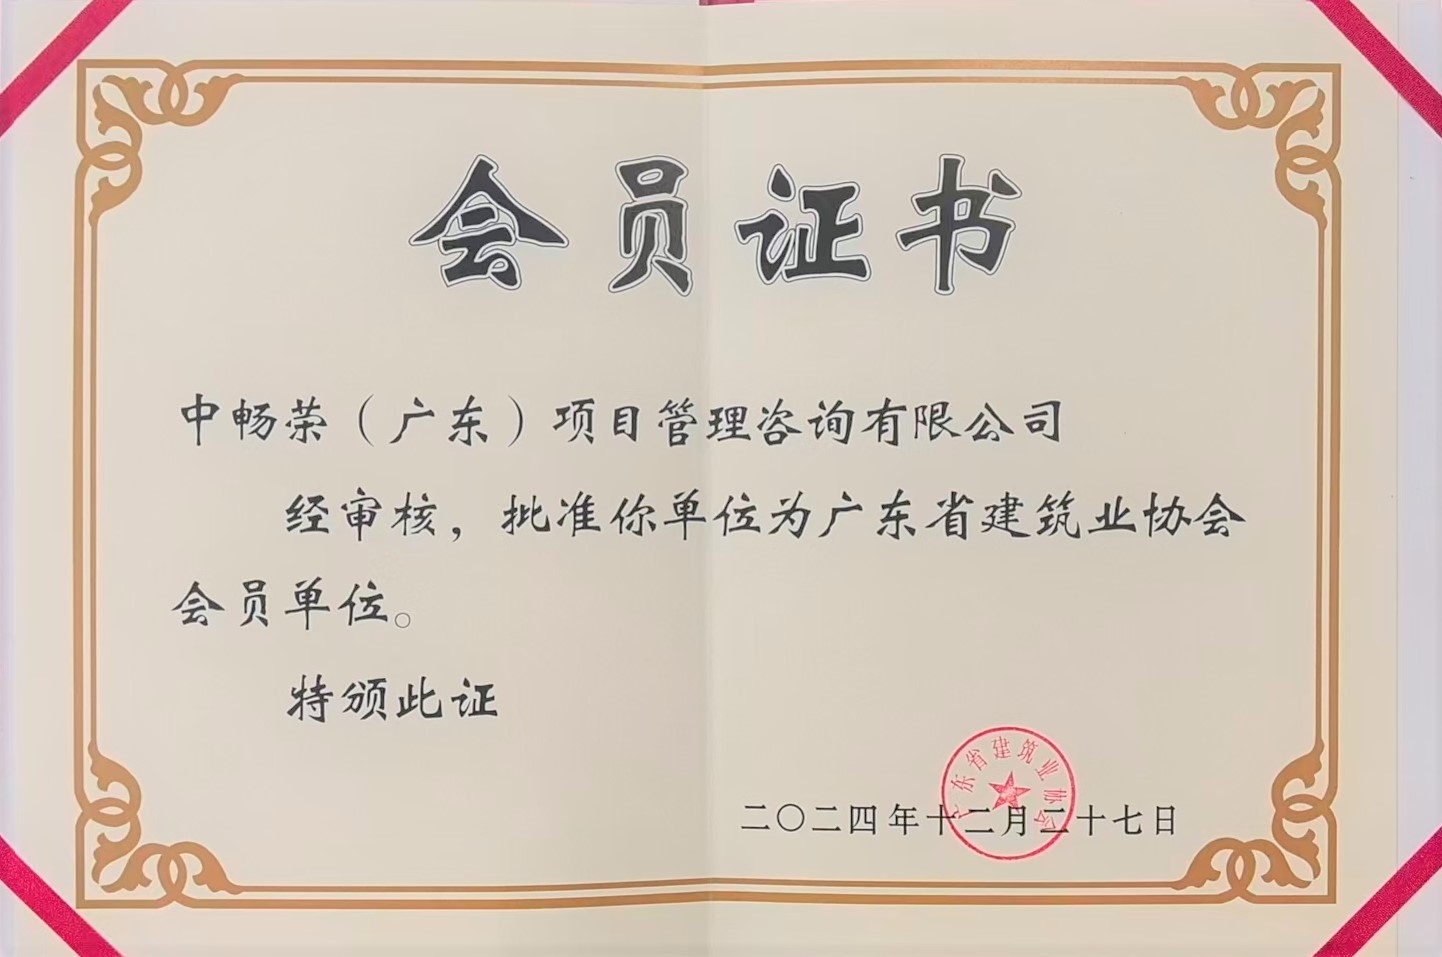 会员证书
中畅荣（广东）项目管理咨询有限公司
经审核，批准你单位为广东省建筑业协会
会员单位。
特颁此证
广东省建筑业协会
二〇二四年十二月二十七日